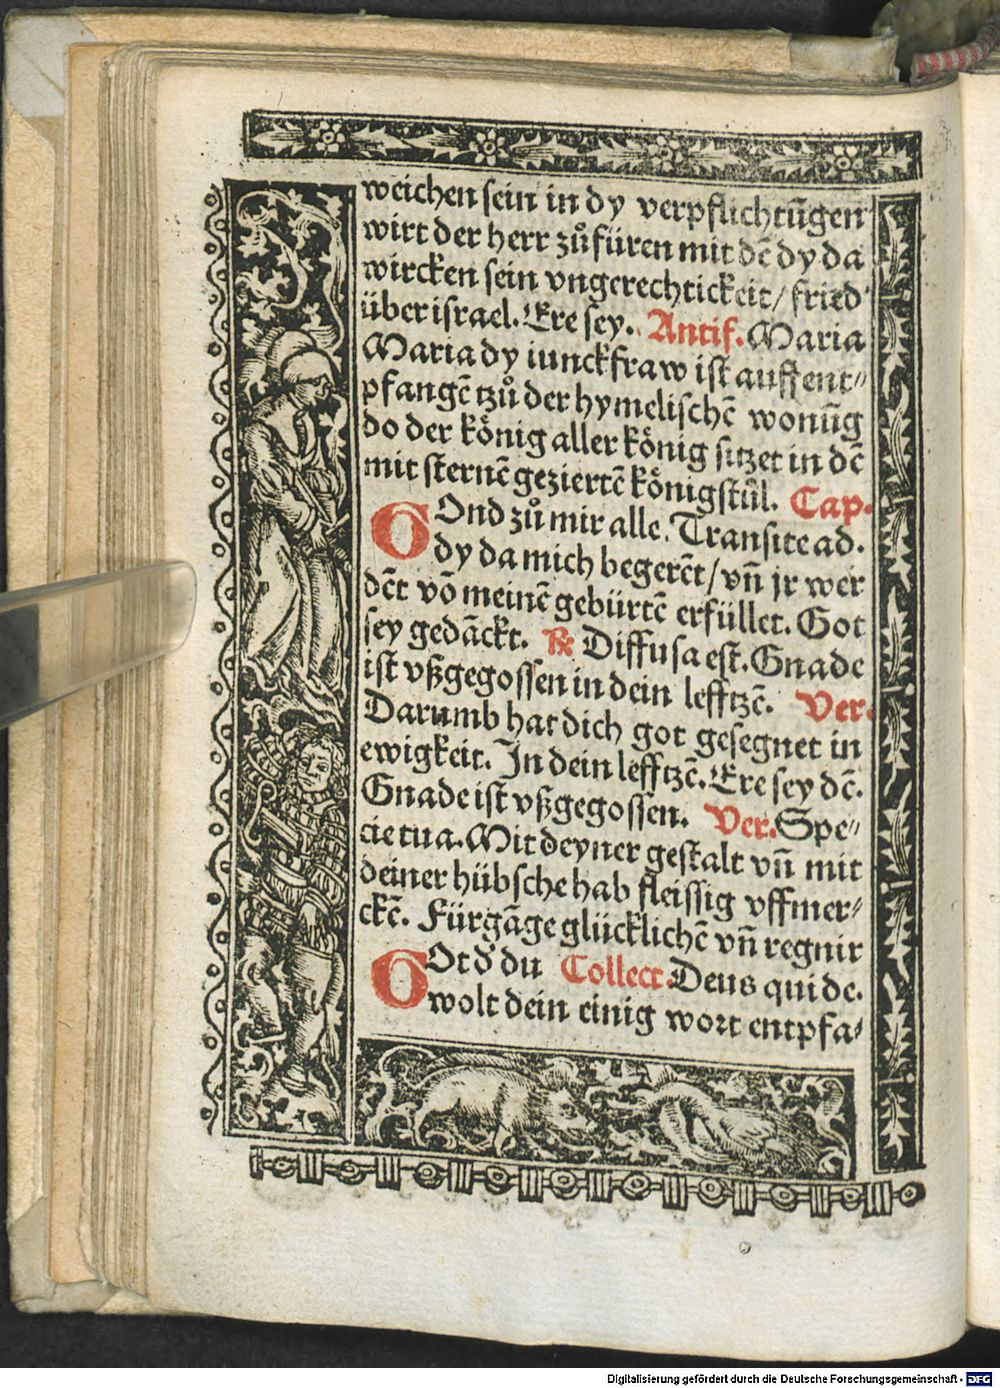 weichen sein in dy verpflichtūgen
wirt der herr zůfüren mit dē dy da
wircken sein vngerechtickeit / fried
über israel. Ere sey. Antif. Maria
Maria dy iunckfraw ist auff ent⸗
pfangē tzů der hymelischē wonūg
do der kȯnig aller kȯnig sitzet in dē
mit sternē geziertē kȯnigstůl. Cap.
GOnd zů mir alle. Transite ad.
dy da mich begerēt / vñ jr wer
dēt vō meinē gebürtē erfüllet. Got
sey gedāckt. ℞ Diffusa est. Gnade
ist vßgegossen in dein lefftzē. Ver.
Darumb hat dich got gesegnet in
ewigkeit. In dein lefftzē. Ere sey dē.
Gnade ist vßgegossen. Ver. Spe⸗
cie tua. Mit deyner gestalt vñ mit
deiner hübsche hab fleissig vffmer⸗
ckē. Fürgāge glücklichē vñ regnir
GOt dʼ du Collect. Deus qui de.
wolt dein einig wort entpfa⸗
Digitalisierung gefördert durch die Deutsche Forschungsgemeinschaft - DFG